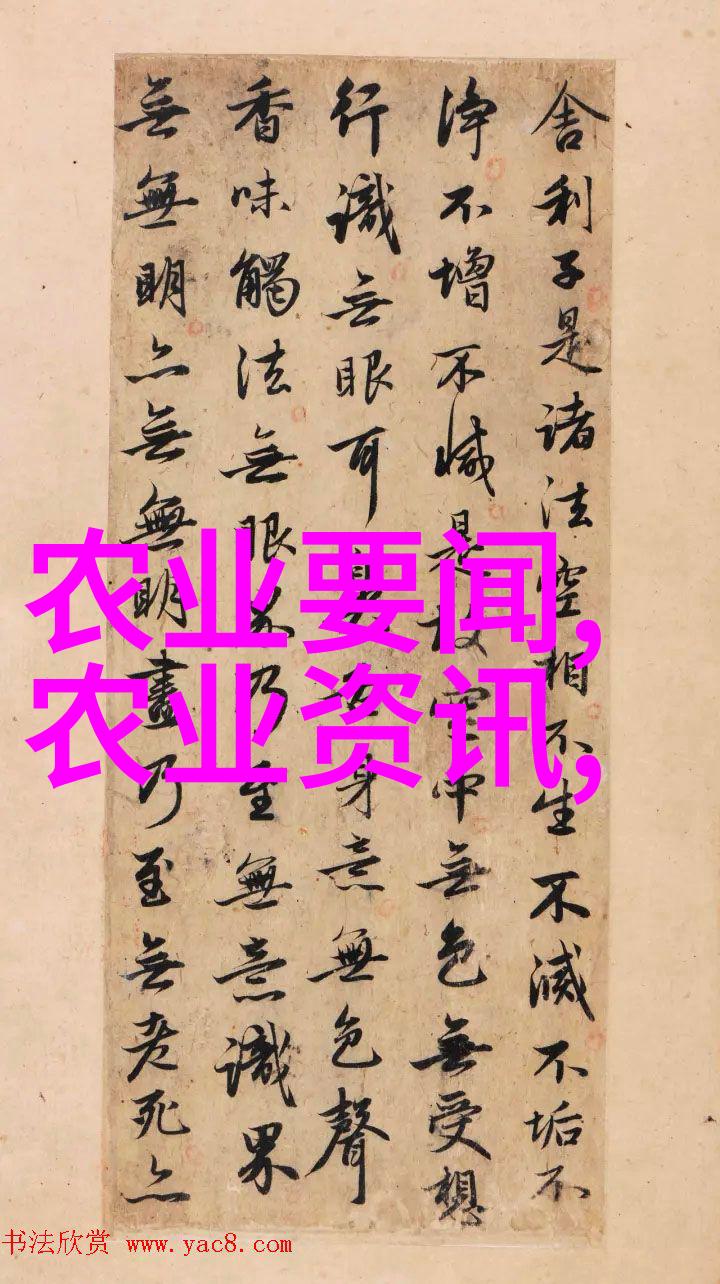 舍利子是諸法空相不生不滅不垢不
淨不增不減是故空中無色無受想
行識無眼耳鼻舌身意無色聲
香味觸法無眼界乃至無意識界
無無明亦無無明盡乃至無老死亦
农业要闻,
农业资讯,
书法欣赏 www.yac8.com